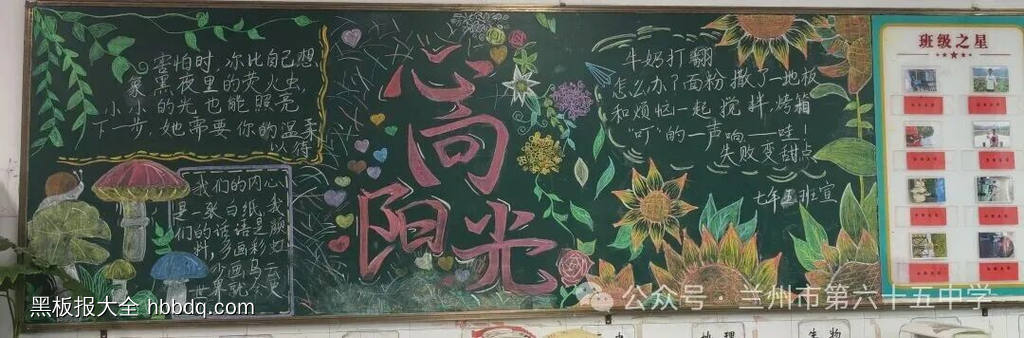 害怕时,你比自己想
象 黑夜里的荧火虫,
小小的光也能照亮
下一步,她需要你的温柔
以待
我们的内心
是一张白纸,我
们的话语是
料,多画彩
少画乌云
世界就会
心向
阳光
牛奶打翻
怎么办了面粉撒了一地板
和烦恼一起搅拌,烤箱
“叮”的一声响——哇!
失败变甜点
七年五班宣
班级之星
黑板报大全 hbbdq.com
公众号·兰州市第六十五中学
地理
生物